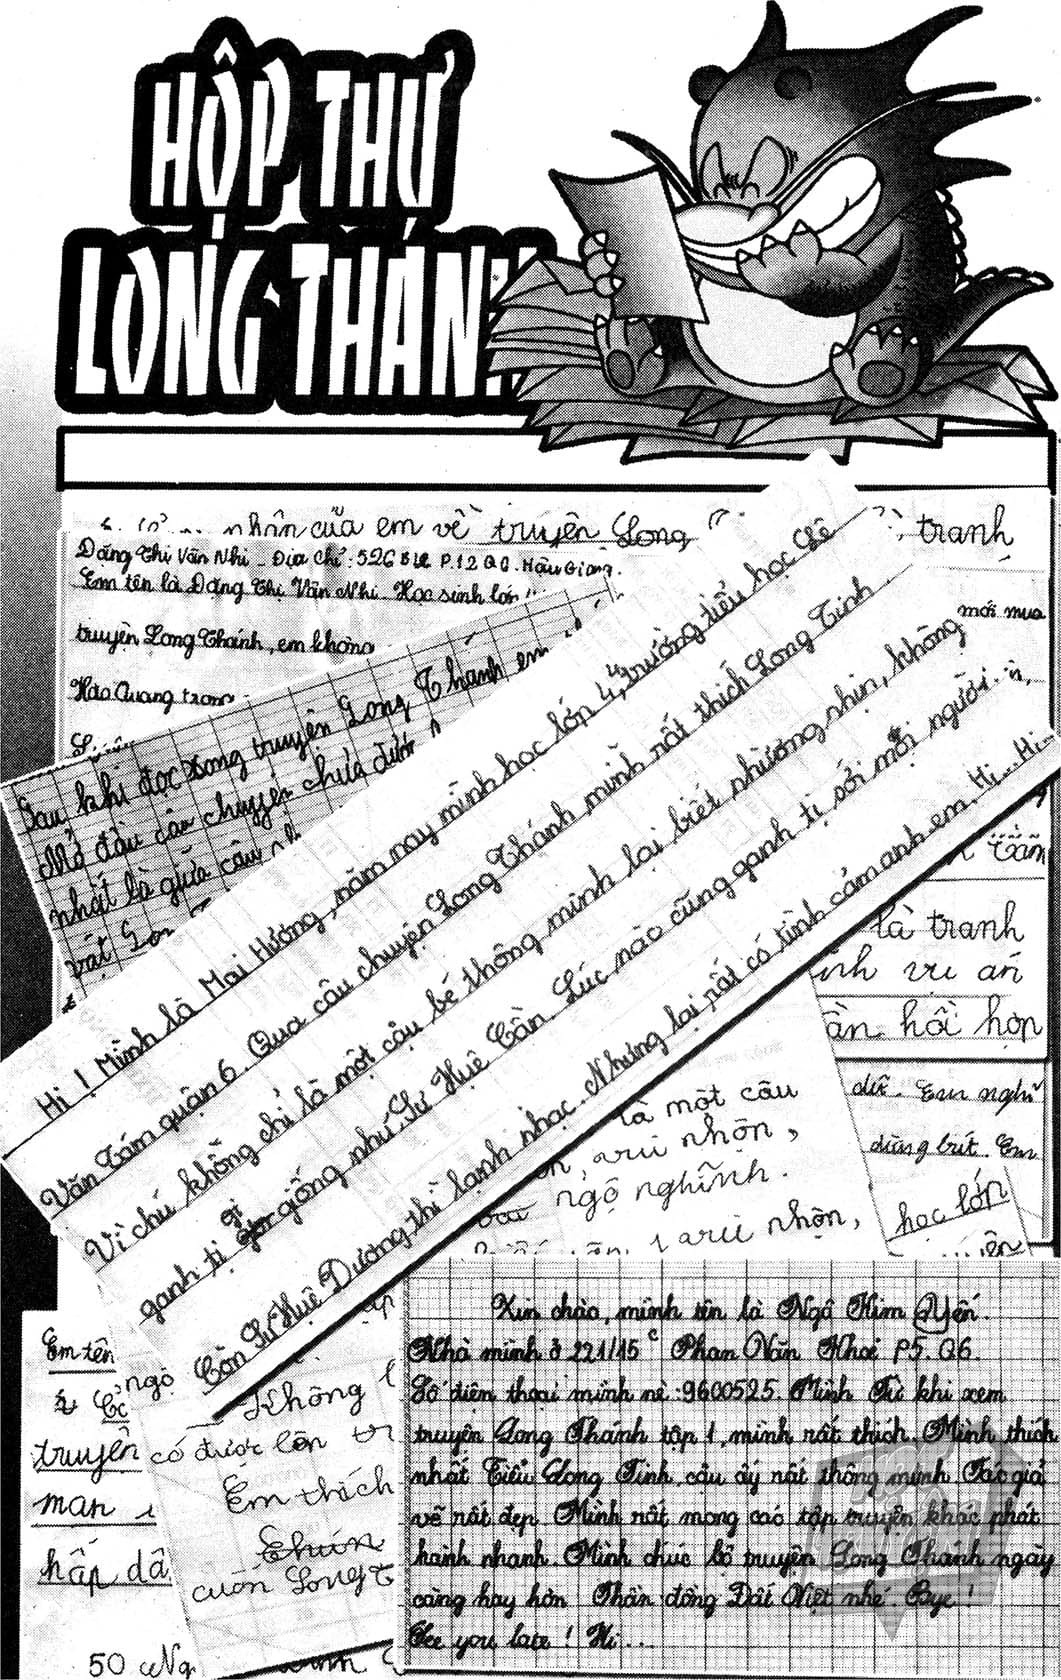 HỘP THƯ
LONG THÁNH
nhân của em về truyện Long
tranh
Đặng Thị Vân Nhi - Địa chỉ: 526 P.12 Q6. Hậu Giang.
Em tên là Đặng Thị Vân Nhi. Học sinh lớp
truyện Long Thánh, em không
Hào Quang trong
mới mua
Sau khi đọc xong truyện Long Thánh em
Mở đầu câu chuyện chưa được
nhất là giữa câu
vật
Hi! Mình là Mai Hương, năm nay mình học lớp 4, trường tiểu học Lê
Văn Tám quận 6. Qua câu chuyện Long Thánh mình rất thích Long Tinh
Vì chú không chỉ là một cậu bé thông minh lại biết nhường nhịn, không
ganh tị giống như Sư Huệ Cần Lúc nào cũng ganh tị với mọi người
Còn Sư Huệ Dương thì lạnh nhạt. Nhưng lại rất có tình cảm anh em. Hi... Hi...
là tranh
vụ án
hồi hộp
là một câu
vui nhộn,
ngộ nghĩnh.
vui nhộn,
dữ. Em nghĩ
dùng bút. Em
học lớp
Em tên
truyện
man
hấp dẫ
50
ngộ
Không
có được lên
Em thích
cuốn Long T
Xin chào, mình tên là Ngô Kim Yến.
Nhà mình ở 221/15c Phan Văn Khoẻ P5. Q6.
Số điện thoại mình nè: 9600525. Mình Từ khi xem
truyện Long Thánh tập 1, mình rất thích. Mình thích
nhất Tiểu Long Tinh, cậu ấy rất thông minh. Tác giả
vẽ rất đẹp. Mình rất mong các tập truyện khác phát
hành nhanh. Mình chúc bộ truyện Long Thánh ngày
càng hay hơn Thần đồng Đất Việt nhé. Bye!
See you late! Hi...